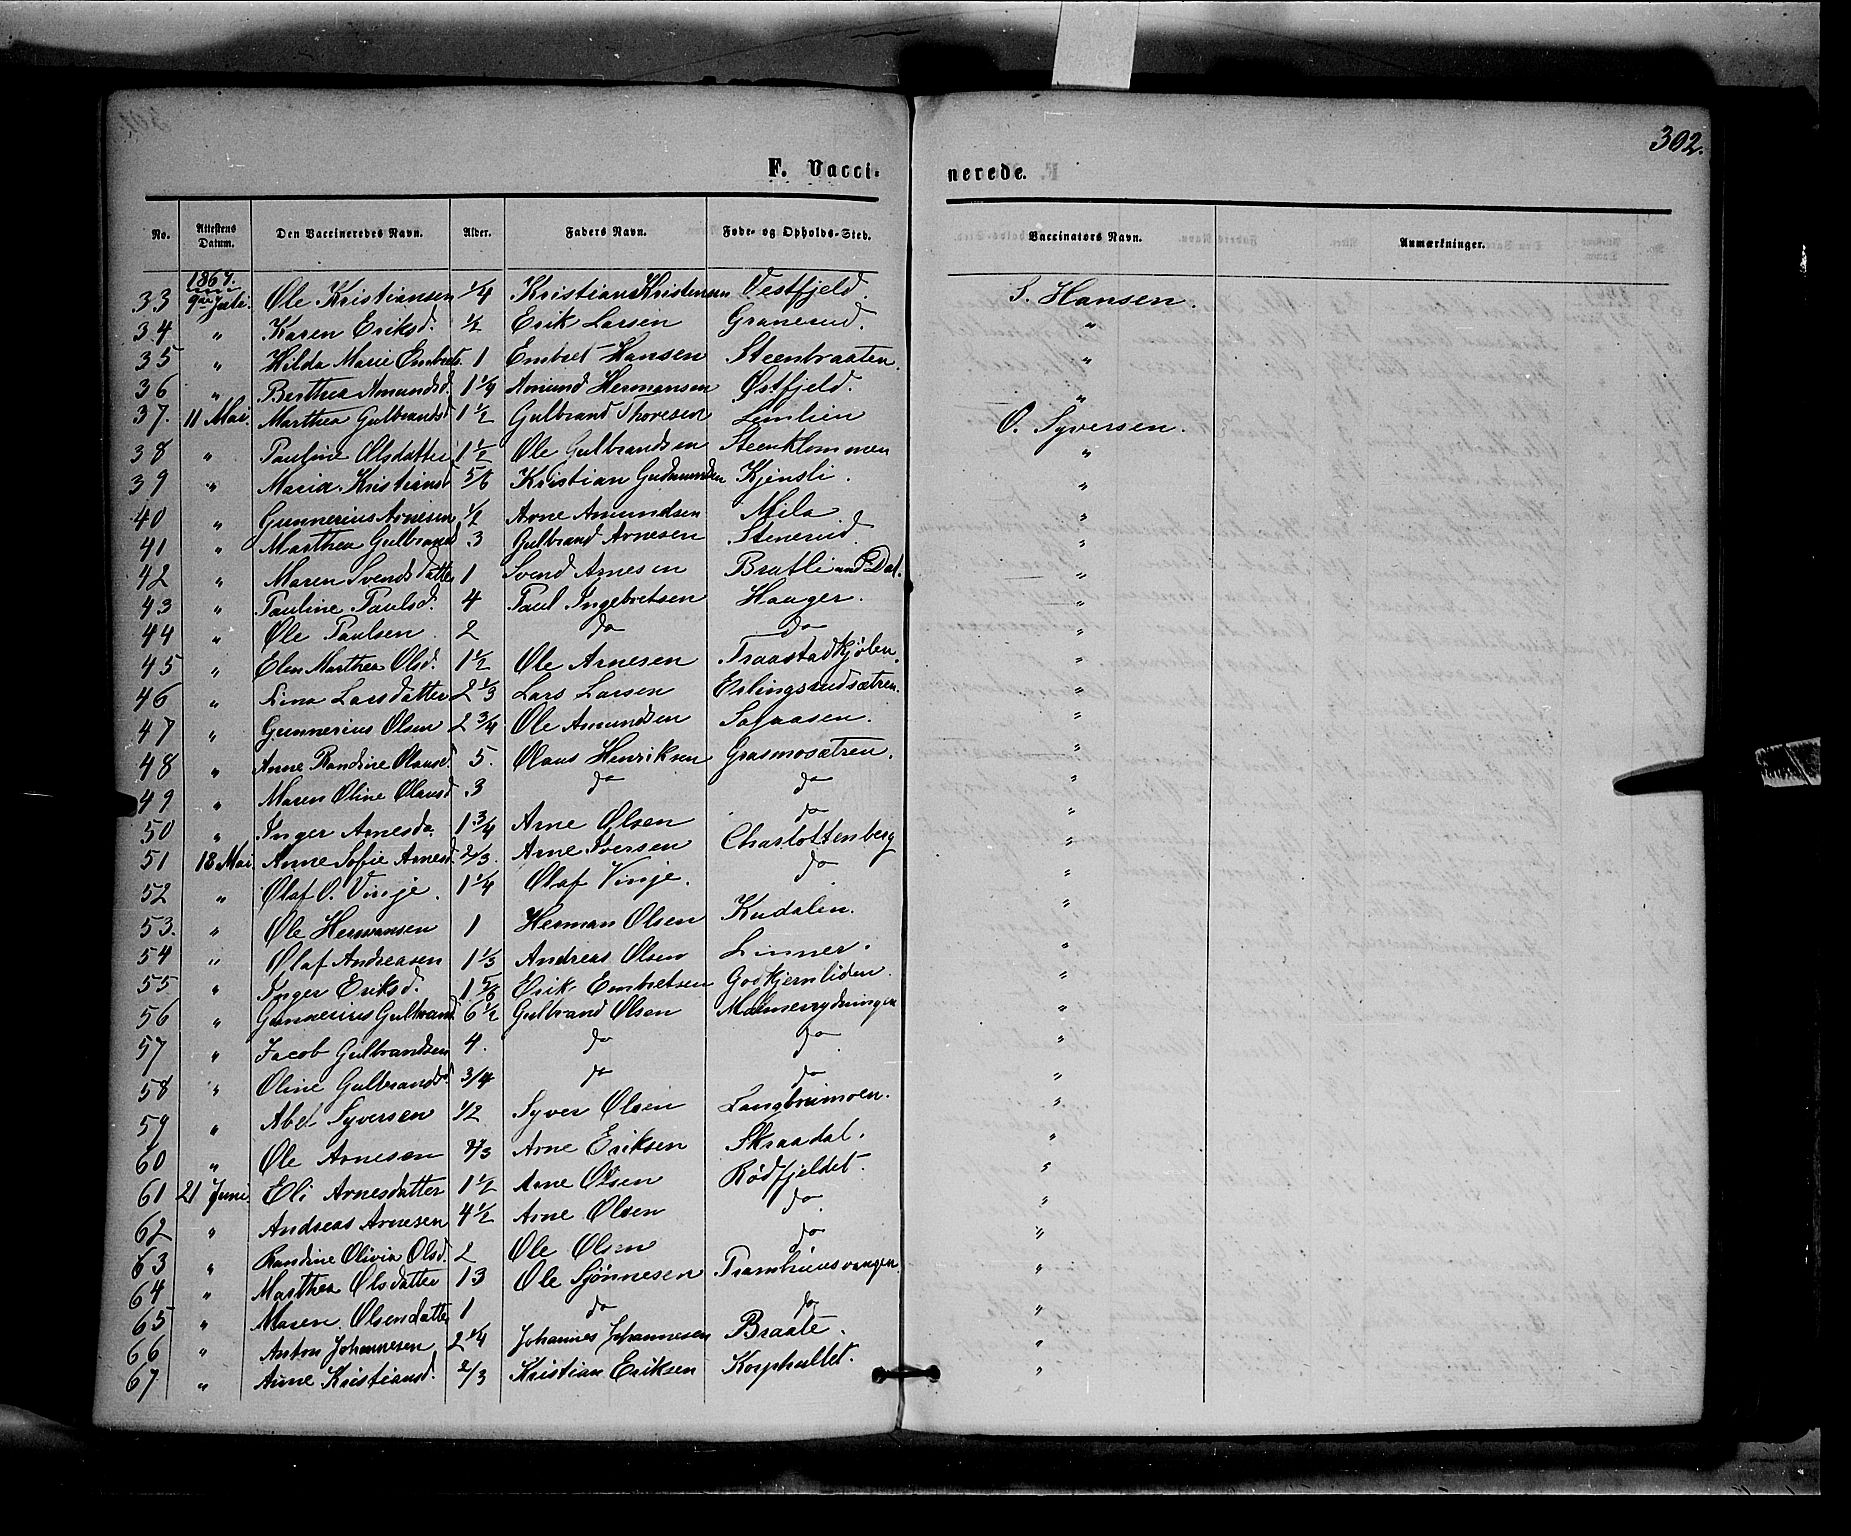 302.
F. Vaccinerede.
No. Attestens Datum. Den Vaccineredes Navn. Alder. Faders Navn. Føde- og Opholds-Sted. Vaccinators Navn. Anmærkninger.
1867.
33 Ole Kristiansen 1/4 Kristian Kristensen Vestfjeld. S. Hansen.
34 " Karen Eriksd. 1/2 Erik Larsen Granerud. "
35 " Hilda Marie Embrets. 1 Embret Hansen Steenbraaten. "
36 " Berthea Amundsd. 1 1/4 Amund Hermansen Østfjeld. "
37. 11 Mai. Marthea Gulbrandsd 1 1/2 Gulbrand Thoresen Lemlien O. Syversen.
38 " Pauline Olsdatter 1 1/2 Ole Gulbrandsen Steenklommen "
39 " Maria Kristiansd 5/6 Kristian Gudmundsen Kjensli. "
40 " Gunnerius Arnesen 1/2 Arne Amundsen Mila "
41 " Marthea Gulbrandsd 3 Gulbrand Arnesen Stenerud. "
42 " Maren Svendsdatter 1 Svend Arnesen Bratli und Dal. "
43 " Pauline Paulsd. 4 Paul Ingebretsen Hauger. "
44 " Ole Paulsen. 2 do do "
45 " Elen Marthea Olsd. 1 1/2 Ole Arnesen Traastadkjølen. "
46 " Lina Larsdatter 2 1/3 Lars Larsen Eslingsrudsætren. "
47 " Gunnerius Olsen 2 3/4 Ole Amundsen Safaasen. "
48 " Anne Randine Olausd 5. Olaus Henriksen Grasmosætren. "
49 " Maren Oline Olausd 3 do do "
50 " Inger Arnesda. 1 3/4 Arne Olsen do "
51 18 Mai Anne Sofie Arnesd 2/3. Arne Iversen Charlottenberg "
52 " Olaf O. Vinje. 1 1/4 Olaf Vinje. do "
53. " Ole Hermansen 1 Herman Olsen Kudalen. "
54 " Olaf Andreasen 1 1/3 Andreas Olsen Linner. "
55 " Inger Eriksd. 1 5/6 Erik Embretsen Godkjernliden. "
56 " Gunnerius Gulbrands 6 1/2 Gulbrand Olsen Malmerydningen "
57 " Jacob Gulbrandsen 4. do do "
58 " Oline Gulbrandsd 3/4 do do "
59 " Abel Syversen 1/2 Syver Olsen Langbrumoen. "
60 " Ole Arnesen 2/3 Arne Eriksen Skraadal. "
61 21 Juni Eli Arnesdatter 1 1/2 Arne Olsen Rødfjeldet. "
62 " Andreas Arnesen 4 1/2 Arne Olsen do "
63 " Randine Olivia Olsd. 2 Ole Olsen do "
64 " Marthea Olsdatter 13 Ole Sjønnesen Tramhuusvangen "
65 " Maren Olsendatter 1 do do "
66 " Anton Johannesen 2 1/4 Johannes Johannesen Braate. "
67 " Anne Kristiansd. 2/3 Kristian Eriksen Korphultet. "